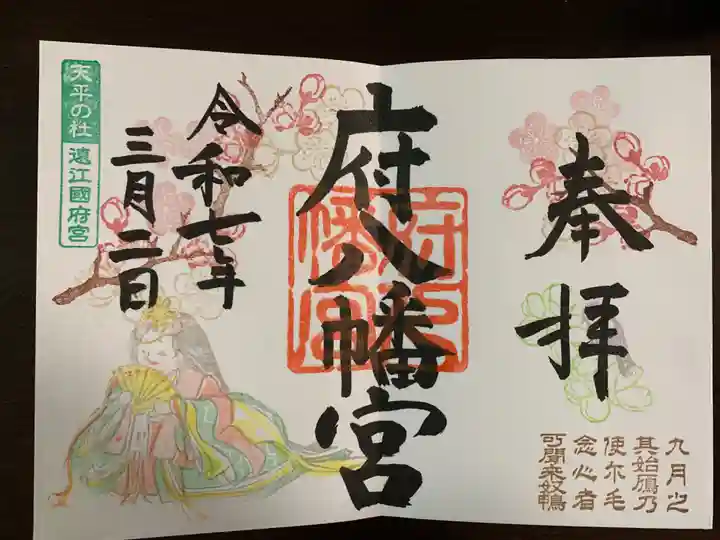 奉拝
府八幡宮
府八幡宮
令和七年
三月二日
天平の杜
遠江國府宮
九月之
其始鴈乃
使尓毛
念心者
可聞来奴鴨